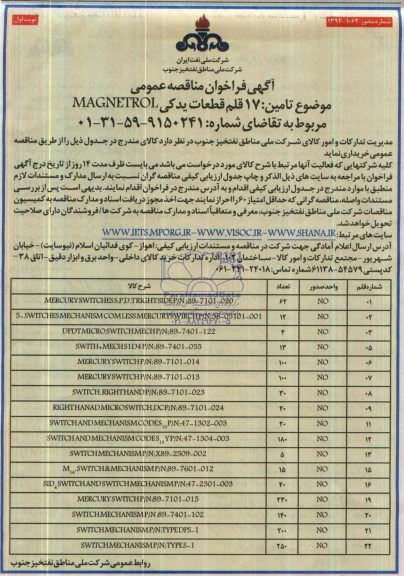 شماره مجوز: ۱۰۶۲-۱۳۹۶
نوبت اول
شرکت ملی نفت ایران
شرکت ملی مناطق نفتخیز جنوب
آگهی فراخوان مناقصه عمومی
موضوع تامین: ۱۷ قلم قطعات یدکی MAGNETROL
مربوط به تقاضای شماره: ۹۱۵۰۲۴۱-۵۹-۳۱-۰۱
مدیریت تدارکات و امور کالای شرکت ملی مناطق نفتخیز جنوب در نظر دارد کالای مندرج در جدول ذیل را از طریق مناقصه
عمومی خریداری نماید
کلیه شرکتهایی که فعالیت آنها مرتبط با شرح کالا مورد درخواست می باشد می بایست ظرف مدت ۱۴ روز از تاریخ درج آگهی
فراخوان با مراجعه به سایت های ذیل الذکر و چاپ جدول ارزیابی کیفی مناقصه گران نسبت به ارسال مدارک و مستندات لازم
منطبق با موارد مندرج در جدول ارزیابی کیفی اقدام و به آدرس مندرج در فراخوان اقدام نمایند. بدیهی است پس از بررسی
مستندات واصله، مناقصه گرانی که حداقل امتیاز ۶۰ را احراز نمایند جهت اخذ مجوز دریافت اسناد و مدارک مناقصه به کمیسیون
مناقصات شرکت ملی مناطق نفتخیز جنوب، معرفی و متعاقباً اسناد و مدارک مناقصه به شرکت ها / فروشندگان دارای صلاحیت
تحویل خواهد شد.
سایت های مرتبط: WWW.IETS.MPORG.IR-WWW.VISOC.IR-WWW.SHANA.IR
آدرس ارسال اعلام آمادگی جهت شرکت در مناقصه و مستندات ارزیابی کیفی: اهواز - کوی فدائیان اسلام (نیوسایت) - خیابان
شهریور - مجتمع تدارکات و امور کالا - ساختمان اداره تدارکات خرید کالای داخلی - واحد برق و ابزار دقیق - اتاق ۳۸ -
کدپستی ۵۴۵۷۹-۶۱۱۳۸ شماره تماس:
شماره واحد صدور تعداد شرح کالا
۰۱ NO ۶۲ MERCURY SWITCHES S.P.D.T RIGHT SIDE P/N:89-7101-020
۰۲ NO ۱۲
۰۳ NO ۴ DPDT MICRO SWITCH MECH P/N:89-7401-122
۰۵ NO ۱۳ SWITH+MECH S1D4 P/N:89-7401-055
۰۶ NO ۱۰۰ MERCURY SWITCH P/N:89-7101-014
۰۷ NO ۱۰۰ MERCURY SWITCH P/N:89-7101-013
۰۸ NO ۳۰ SWITCH,RIGHT HAND P/N:89-7101-023
۰۹ NO ۴۰ RIGHT HANAD MICROSWITCH,DC P/N:89-7101-024
۱۱ NO ۲۰ P/N:47-1302-003
۱۲ NO ۱۸۰ P/N:47-1304-003
۱۳ NO ۵ SWITCH MECHANISM P/N:X89-2509-002
۱۵ NO ۱۵ SWITCH & MECHANISM P/N:89-7601-012
۱۶ NO ۴۰ SWITCH AND SWITCH MECHANISM P/N:47-2301-003
۱۹ NO ۲۳۰ MERCURY SWITCH P/N:89-7101-015
۲۰ NO ۱۴۰ SWITCH MECHANISM P/N:89-7401-102
۲۱ NO ۲۰۰ SWITCH MECHANISM P/N:TYPE DPS-1
۲۲ NO ۲۵۰ SWITCH MECHANISM P/N:TYPE S-1
روابط عمومی شرکت ملی مناطق نفتخیز جنوب